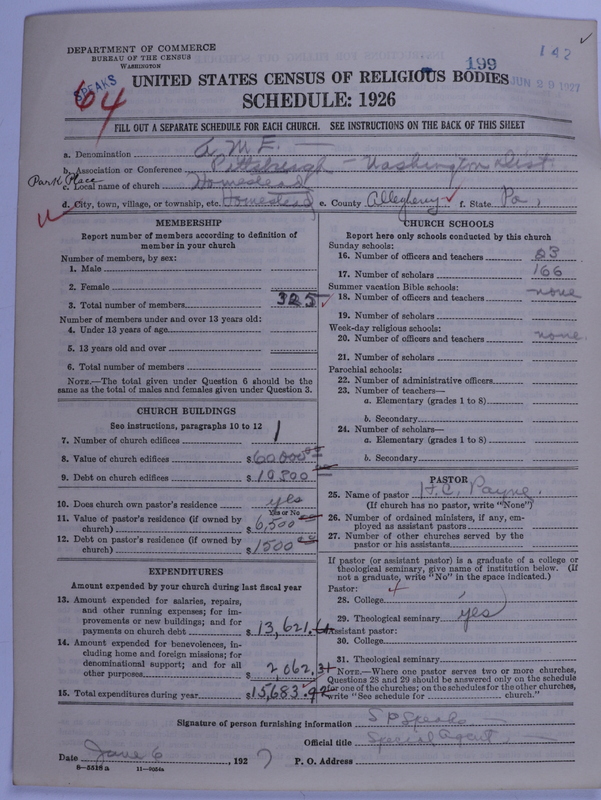 DEPARTMENT OF COMMERCE
BUREAU OF THE CENSUS
WASHINGTON
SPEAKS
64
199
142
JUN 29 1927
UNITED STATES CENSUS OF RELIGIOUS BODIES
SCHEDULE: 1926
FILL OUT A SEPARATE SCHEDULE FOR EACH CHURCH. SEE INSTRUCTIONS ON THE BACK OF THIS SHEET
a. Denomination A. M. E.
b. Association or Conference Pittsburgh - Washington Dist.
Park Place
c. Local name of church Homestead
d. City, town, village, or township, etc. Homestead e. County Allegheny f. State Pa,
MEMBERSHIP
Report number of members according to definition of
member in your church
Number of members, by sex:
1. Male
2. Female
3. Total number of members 325
Number of members under and over 13 years old:
4. Under 13 years of age
5. 13 years old and over
6. Total number of members
NOTE.—The total given under Question 6 should be the
same as the total of males and females given under Question 3.
CHURCH BUILDINGS
See instructions, paragraphs 10 to 12
7. Number of church edifices 1
8. Value of church edifices $60000 00
9. Debt on church edifices $10,800 00
10. Does church own pastor's residence yes
Yes or No
11. Value of pastor's residence (if owned by
church) $6,500 00
12. Debt on pastor's residence (if owned by
church) $1500 00
EXPENDITURES
Amount expended by your church during last fiscal year
13. Amount expended for salaries, repairs,
and other running expenses; for im-
provements or new buildings; and for
payments on church debt $13,621.61
14. Amount expended for benevolences, in-
cluding home and foreign missions; for
denominational support; and for all
other purposes $2062.31
15. Total expenditures during year $15,683.92
CHURCH SCHOOLS
Report here only schools conducted by this church
Sunday schools:
16. Number of officers and teachers 23
17. Number of scholars 166
Summer vacation Bible schools:
18. Number of officers and teachers none
19. Number of scholars
Week-day religious schools:
20. Number of officers and teachers none
21. Number of scholars
Parochial schools:
22. Number of administrative officers
23. Number of teachers—
a. Elementary (grades 1 to 8)
b. Secondary
24. Number of scholars—
a. Elementary (grades 1 to 8)
b. Secondary
PASTOR
25. Name of pastor H. C. Payne.
(If church has no pastor, write "None")
26. Number of ordained ministers, if any, em-
ployed as assistant pastors
27. Number of other churches served by the
pastor or his assistants
If pastor (or assistant pastor) is a graduate of a college or
theological seminary, give name of institution below. (If
not a graduate, write "No" in the space indicated.)
Pastor:
28. College
29. Theological seminary yes
Assistant pastor:
30. College
31. Theological seminary
NOTE.—Where one pastor serves two or more churches,
Questions 28 and 29 should be answered only on the schedule
for one of the churches; on the schedules for the other churches,
write "See schedule for church."
Signature of person furnishing information S P Speaks
Official title Special Agent
Date June 6, 1927 P. O. Address
8—5518 a 11—9034a